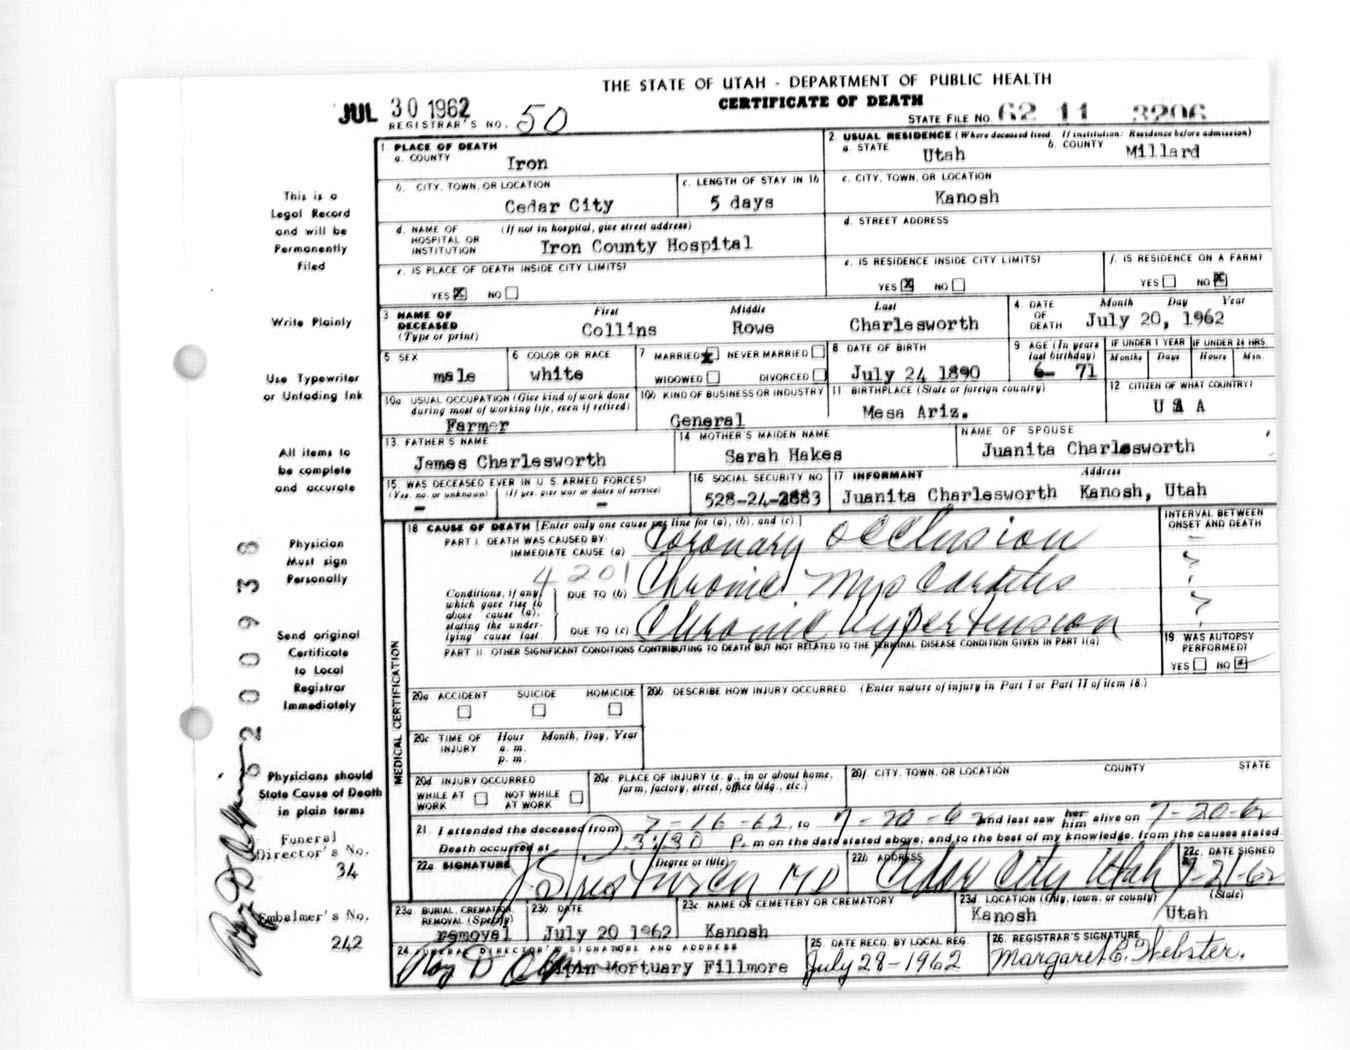 THE STATE OF UTAH - DEPARTMENT OF PUBLIC HEALTH
CERTIFICATE OF DEATH
JUL 30 1962
REGISTRAR'S NO. 50
STATE FILE NO. 62 11 3206
This is a
Legal Record
and will be
Permanently
Filed
Write Plainly
Use Typewriter
or Unfading Ink
All items to
be complete
and accurate
Physician
Must sign
Personally
Send original
Certificate
to Local
Registrar
Immediately
Physicians should
State Cause of Death
in plain terms
Funeral
Director's No.
34
Embalmer's No.
242
6200938
1 PLACE OF DEATH
a. COUNTY Iron
2. USUAL RESIDENCE (Where deceased lived. If institution: Residence before admission)
a. STATE Utah b. COUNTY Millard
b. CITY, TOWN, OR LOCATION Cedar City
c. LENGTH OF STAY IN 1b 5 days
c. CITY, TOWN, OR LOCATION Kanosh
d. NAME OF HOSPITAL OR INSTITUTION (If not in hospital, give street address) Iron County Hospital
d. STREET ADDRESS
e. IS PLACE OF DEATH INSIDE CITY LIMITS?
YES X NO
e. IS RESIDENCE INSIDE CITY LIMITS?
YES X NO
f. IS RESIDENCE ON A FARM?
YES NO X
3 NAME OF DECEASED (Type or print)
First Middle Last
Collins Rowe Charlesworth
4. DATE OF DEATH Month Day Year
July 20, 1962
5 SEX male
6 COLOR OR RACE white
7 MARRIED X NEVER MARRIED
WIDOWED DIVORCED
8 DATE OF BIRTH July 24 1890
9 AGE (In years last birthday) 71
IF UNDER 1 YEAR Months Days
IF UNDER 24 HRS. Hours Min.
10a USUAL OCCUPATION (Give kind of work done during most of working life, even if retired)
Farmer
10b KIND OF BUSINESS OR INDUSTRY
General
11 BIRTHPLACE (State or foreign country)
Mesa Ariz.
12 CITIZEN OF WHAT COUNTRY?
U S A
13. FATHER'S NAME
James Charlesworth
14 MOTHER'S MAIDEN NAME
Sarah Hakes
NAME OF SPOUSE
Juanita Charlesworth
15. WAS DECEASED EVER IN U.S. ARMED FORCES?
(Yes, no, or unknown) (If yes, give war or dates of service)
- -
16 SOCIAL SECURITY NO
528-24-2883
17 INFORMANT Address
Juanita Charlesworth Kanosh, Utah
MEDICAL CERTIFICATION
18 CAUSE OF DEATH [Enter only one cause per line for (a), (b), and (c).]
INTERVAL BETWEEN ONSET AND DEATH
PART I. DEATH WAS CAUSED BY:
IMMEDIATE CAUSE (a) Coronary occlusion ?
4201
Conditions, if any, which gave rise to above cause (a), stating the underlying cause last.
DUE TO (b) Chronic Myocarditis ?
DUE TO (c) Chronic hypertension ?
PART II. OTHER SIGNIFICANT CONDITIONS CONTRIBUTING TO DEATH BUT NOT RELATED TO THE TERMINAL DISEASE CONDITION GIVEN IN PART I(a)
19 WAS AUTOPSY PERFORMED?
YES NO X
20a ACCIDENT SUICIDE HOMICIDE
20b DESCRIBE HOW INJURY OCCURRED (Enter nature of injury in Part I or Part II of item 18.)
20c TIME OF INJURY Hour Month, Day, Year
a. m.
p. m.
20d INJURY OCCURRED
WHILE AT WORK NOT WHILE AT WORK
20e. PLACE OF INJURY (e. g., in or about home, farm, factory, street, office bldg., etc.)
20f. CITY, TOWN, OR LOCATION COUNTY STATE
21. I attended the deceased from 7-16-62, to 7-20-62 and last saw her him alive on 7-20-62
Death occurred at 3:30 P. m on the date stated above; and to the best of my knowledge, from the causes stated
22a SIGNATURE (Degree or title) MD
22b ADDRESS Cedar City Utah
22c. DATE SIGNED 7-21-62
23a. BURIAL, CREMATION, REMOVAL (Specify)
removal
23b DATE
July 20 1962
23c NAME OF CEMETERY OR CREMATORY
Kanosh
23d LOCATION (City, town, or county) (State)
Kanosh Utah
24 FUNERAL DIRECTOR'S SIGNATURE AND ADDRESS
Mortuary Fillmore
25. DATE RECD. BY LOCAL REG.
July 28-1962
26. REGISTRAR'S SIGNATURE
Margaret C. Webster.